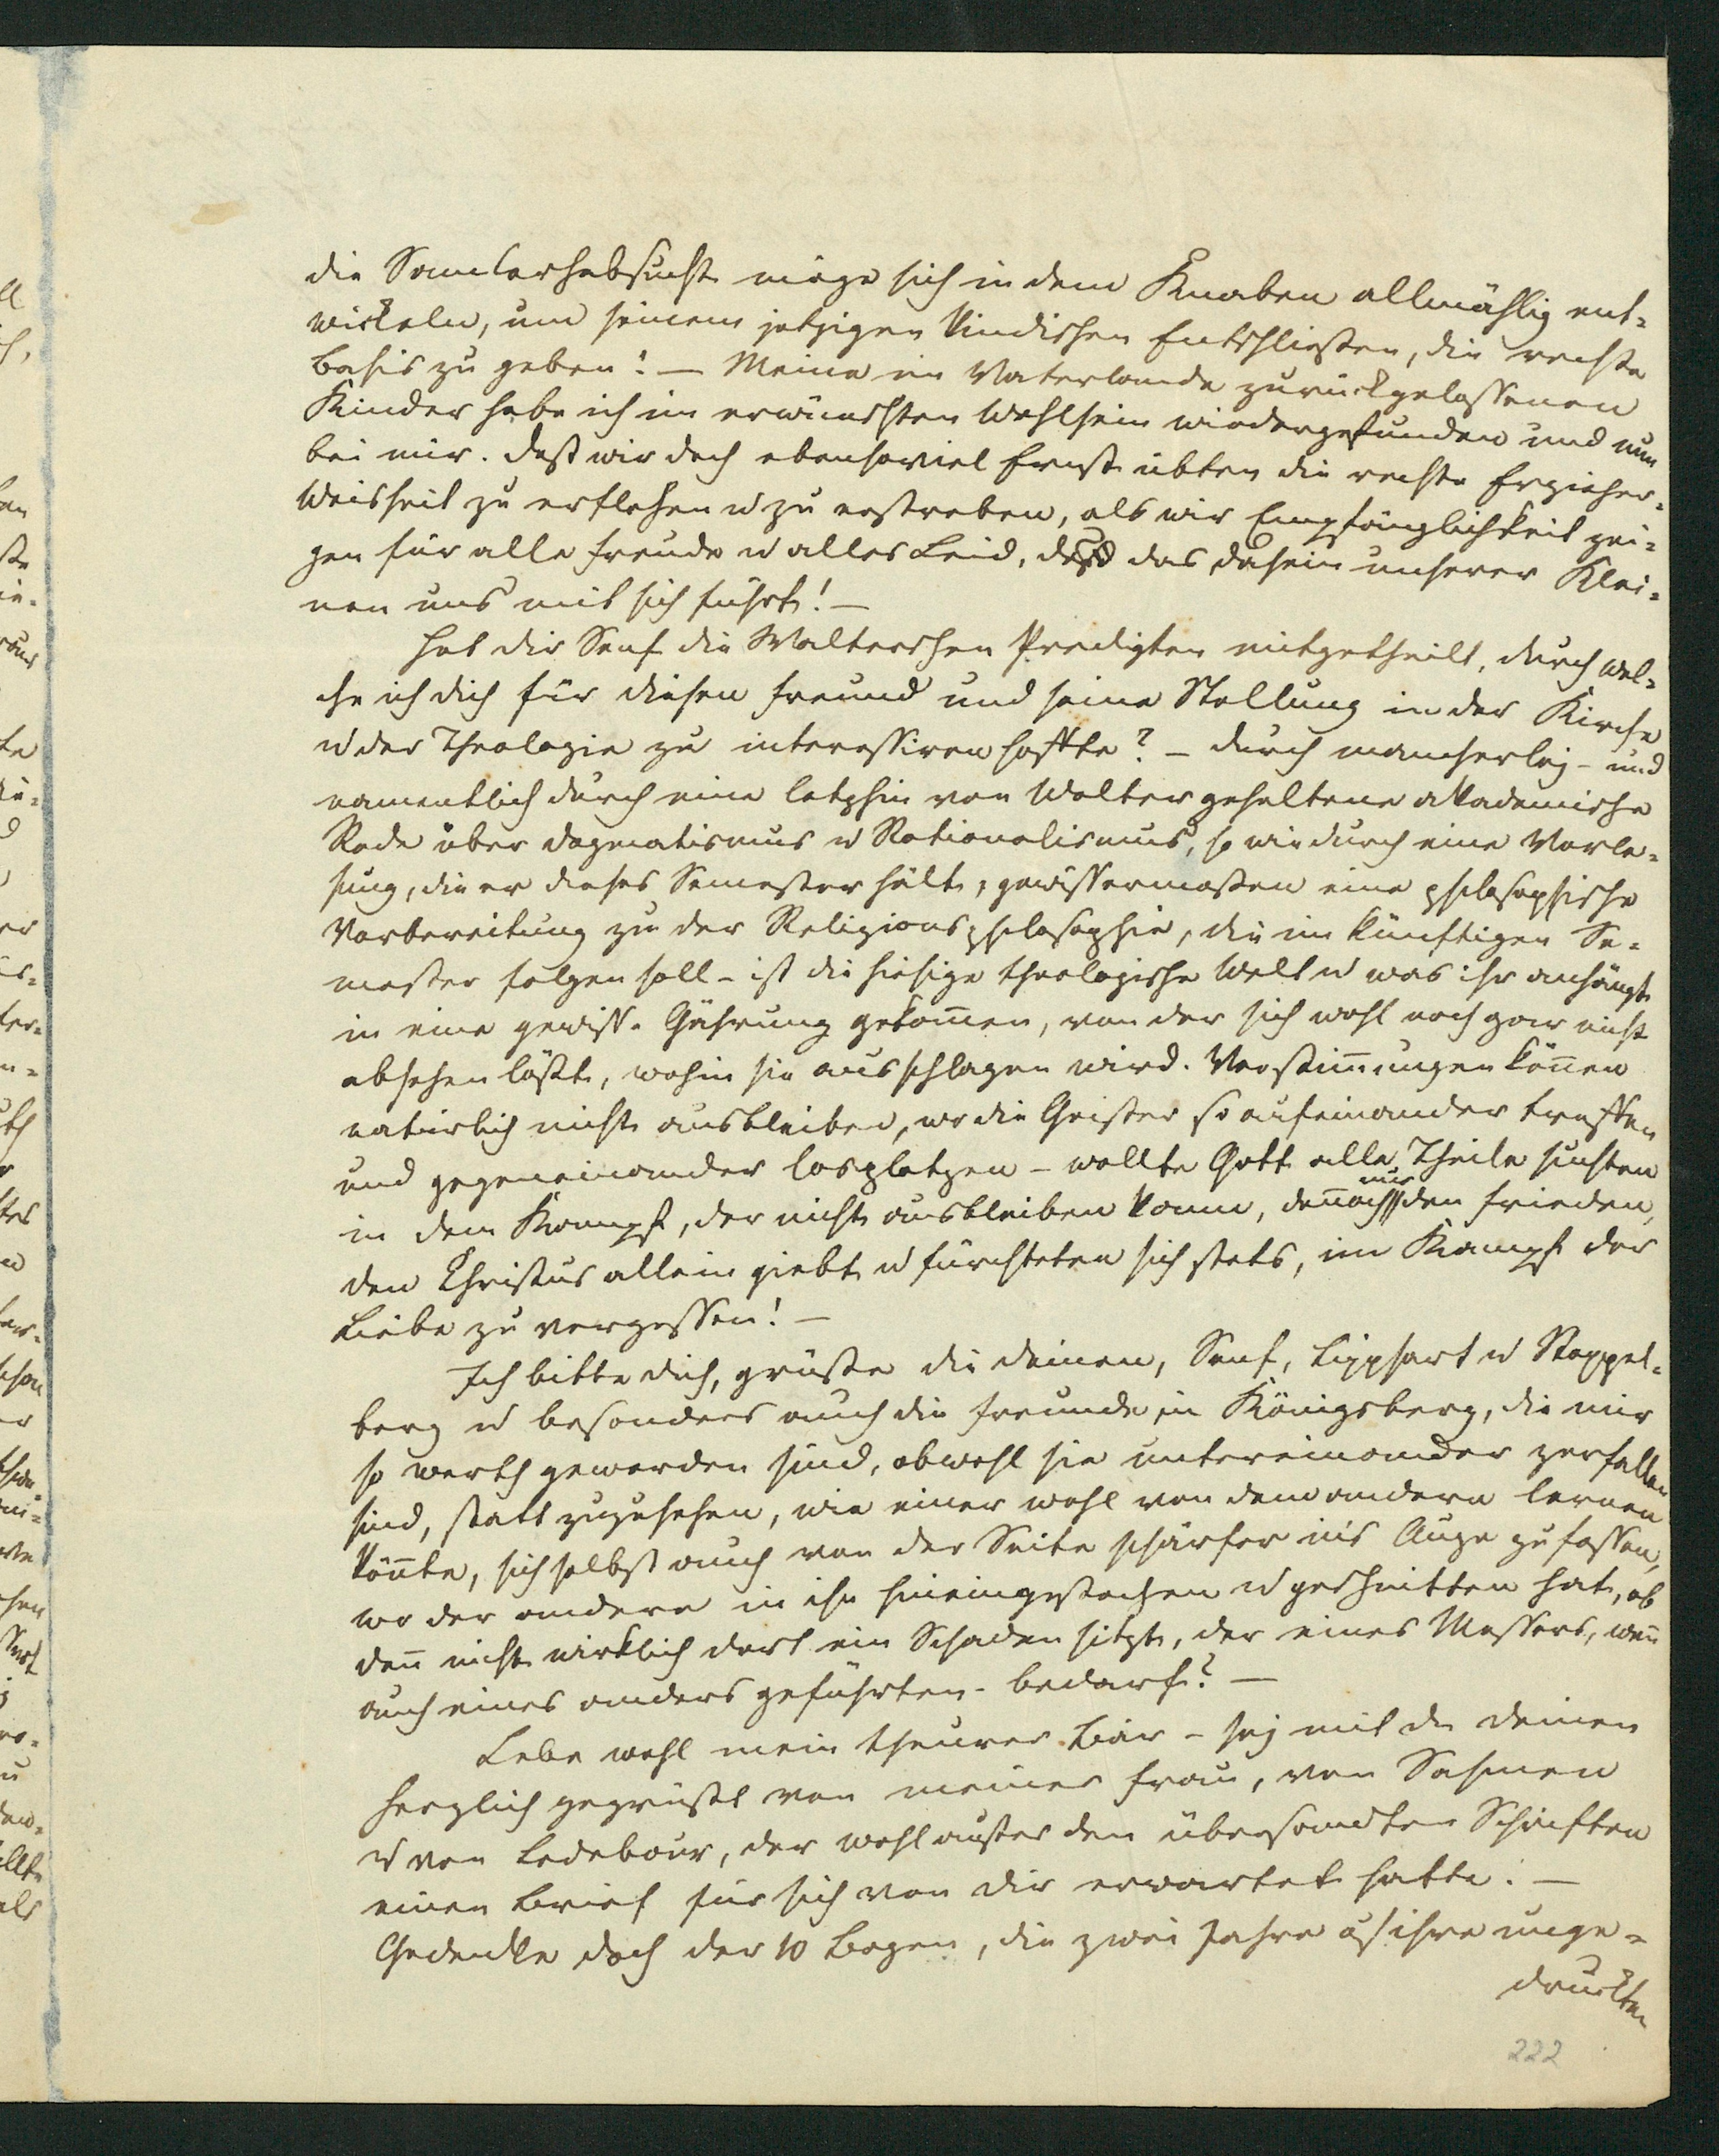 die Sammlerhabsucht möge sich in dem Knaben allmählig ent-
wickeln, um seinem jetzigen kindischen Entschließen, die rechte
Basis zu geben! — Meine im Vaterlande zurückgelassenen
Kinder habe ich im erwünschten Wohlsein wiedergefunden und nun
bei mir. Daß wir doch ebensoviel Ernst übten die rechte Erzieher-
weisheit zu erflehen u zu erstreben, als wir Empfänglichkeit zei-
gen für alle Freude u alles Leid, das das Dasein unserer Klei-
nen uns mit sich führt! —
Hat dir Senf die Walterschen Predigten mitgetheilt, durch wel-
che ich dich für diesen Freund und seine Stellung in der Kirche
u der Theologie zu interessiren hoffte? – Durch mancherlej – und
namentlich durch eine letzthin von Walter gehaltene akademische
Rede über Dogmatismus u Rationalismus, so wie durch eine Vorle-
sung, die er dieses Semester hält, gewissermaßen eine philosophische
Vorbereitung zu der Religionsphilosophie, die im künftigen Se-
mester folgen soll – ist die hiesige theologische Welt u was ihr anhängt
in eine gewisse Gährung gekom̄en, von der sich wohl noch gar nicht
absehen läßt, wohin sie ausschlagen wird. Verstim̄ungen kön̄en
natürlich nicht ausbleiben, wo die Geister so aufeinander treffen
und gegeneinander losplatzen – wollte Gott alle Theile suchten
in dem Kampf, der nicht ausbleiben kann, den̄och nur den Frieden,
den Christus allein giebt u fürchteten sich stets, im Kampf der
Liebe zu vergessen! —
Ich bitte dich, grüße die deinen, Senf, Lipphart u Stappel-
berg u besonders auch die Freunde in Königsberg, die mir
so werth geworden sind, obwohl sie untereinander zerfallen
sind, statt zuzusehen, wie einer wohl von dem andern lernen
kön̄te, sich selbst auch von der Seite schärfer in's Auge zu fassen,
wo der andere in ihn hineingestochen u geschnitten hat, ob
den̄ nicht wirklich dort ein Schaden sitzt, der eines Messers, wen̄
auch eines anders geführten – bedarf? —
Lebe wohl mein theurer Bär – sej mit den deinen
herzlich gegrüßt von meiner Frau, von Sahmen
u von Ledebour, der wohl außer den übersandten Schriften
einen Brief für sich von dir erwartet hatte. —
Gedenke doch der 10 Bogen, die zwei Jahre auf ihre unge-
druckten
222